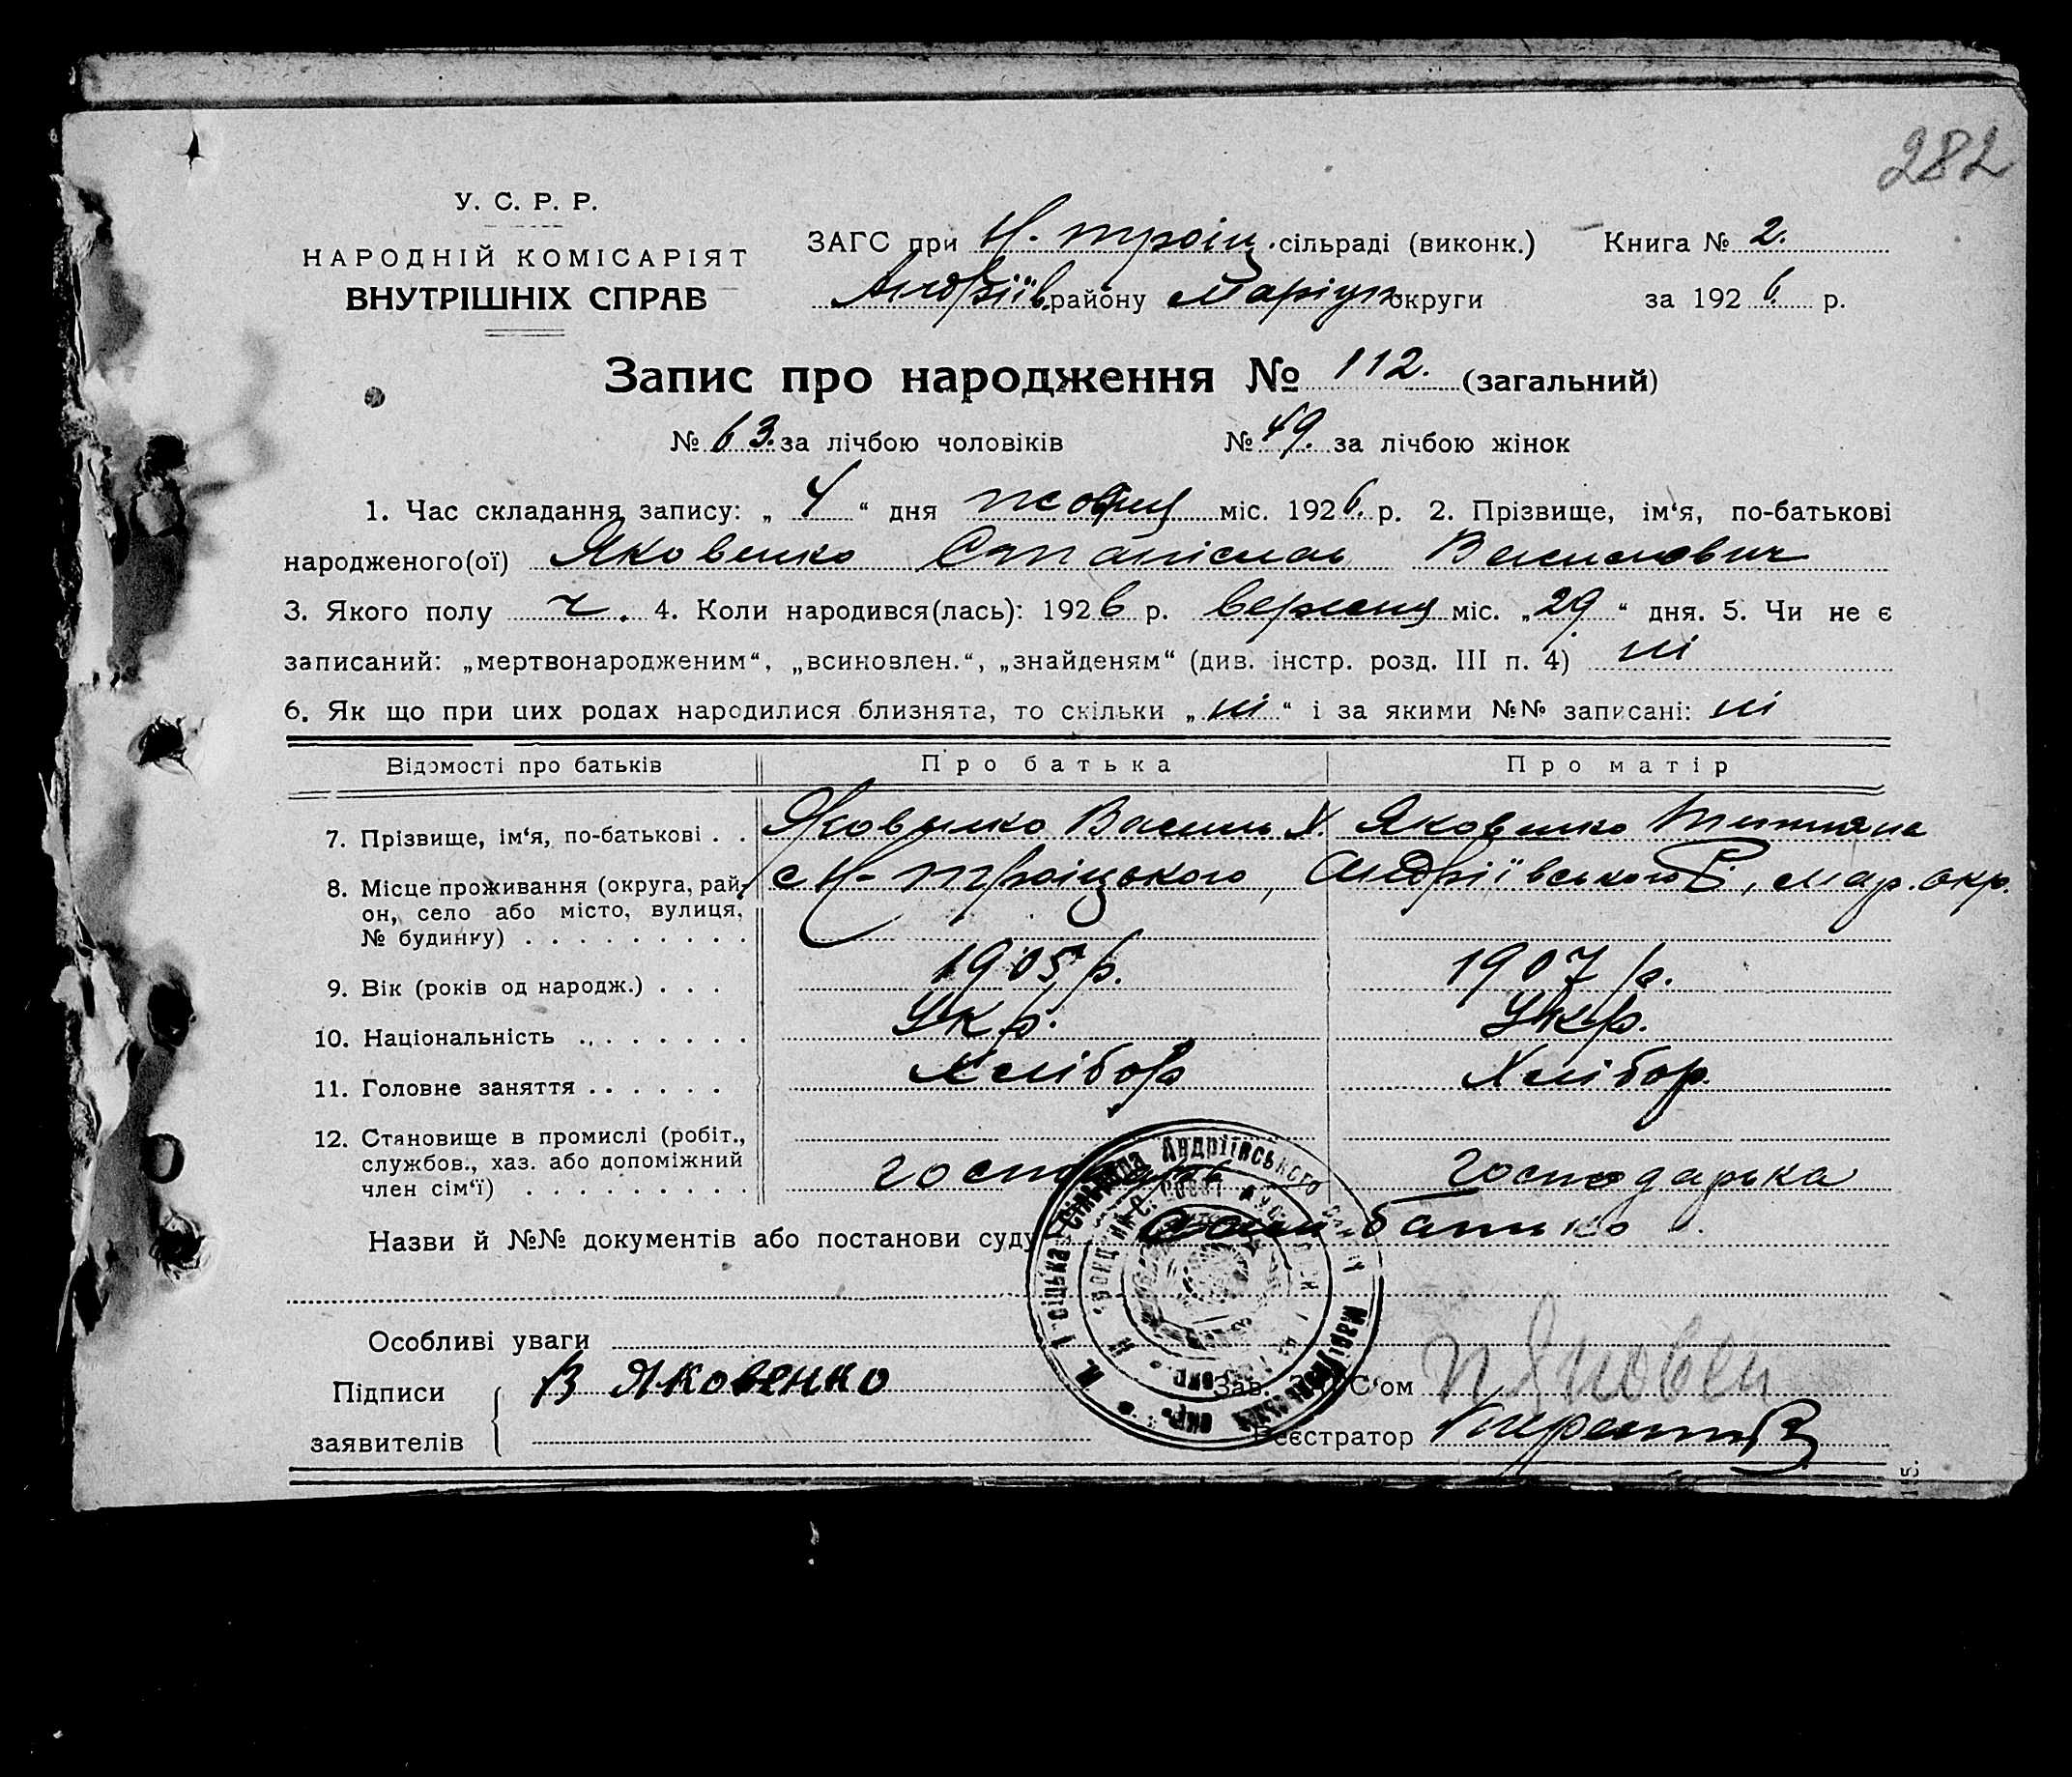 282
У. С. Р. Р.
НАРОДНІЙ КОМІСАРІЯТ
ВНУТРІШНІХ СПРАВ
ЗАГС при Н. троіц. сільраді (виконк.) Книга № 2.
Андріїв. району Маріуп округи за 1926 р.
Запис про народження № 112. (загальний)
№ 63. за лічбою чоловіків № 49. за лічбою жінок
1. Час складання запису: „ 4 “ дня жовтня міс. 1926. р. 2. Прізвище, ім‘я, по-батькові
народженого(ої) Яковенко Станіслав Васильович
3. Якого полу ч. 4. Коли народився(лась): 1926 р. вересня міс. „29.“ дня. 5. Чи не є
записаний: „мертвонародженим“, „всиновлен.“, „знайденям“ (див. інстр. розд. III п. 4) ні
6. Як що при цих родах народилися близнята, то скільки „ ні “ і за якими №№ записані: ні
Відомості про батьків Про батька Про матір
7. Прізвище, ім‘я, по-батькові . . Яковенко Василь Х. Яковенко Тетяна
8. Місце проживання (округа, рай- с Н-Троіцького, Андріївського Р., Мар. окр.
он, село або місто, вулиця,
№ будинку) . . . . . . . . .
9. Вік (років од народж.) . . . 1905 р. 1907 р.
10. Національність . . . . . . . Укр. Укр.
11. Головне заняття . . . . . . Хлібор Хлібор.
12. Становище в промислі (робіт.,
службов., хаз. або допоміжний
член сім‘ї) . . . . . . . . . господарь господарька
Назви й №№ документів або постанови суду батько
Особливі уваги
Підписи В Яковенко Зав. ЗАГС‘ом П Яковен
заявителів Реєстратор
Н. Троіцька Сільрада Андріївського району Маріупольської окр.
15.